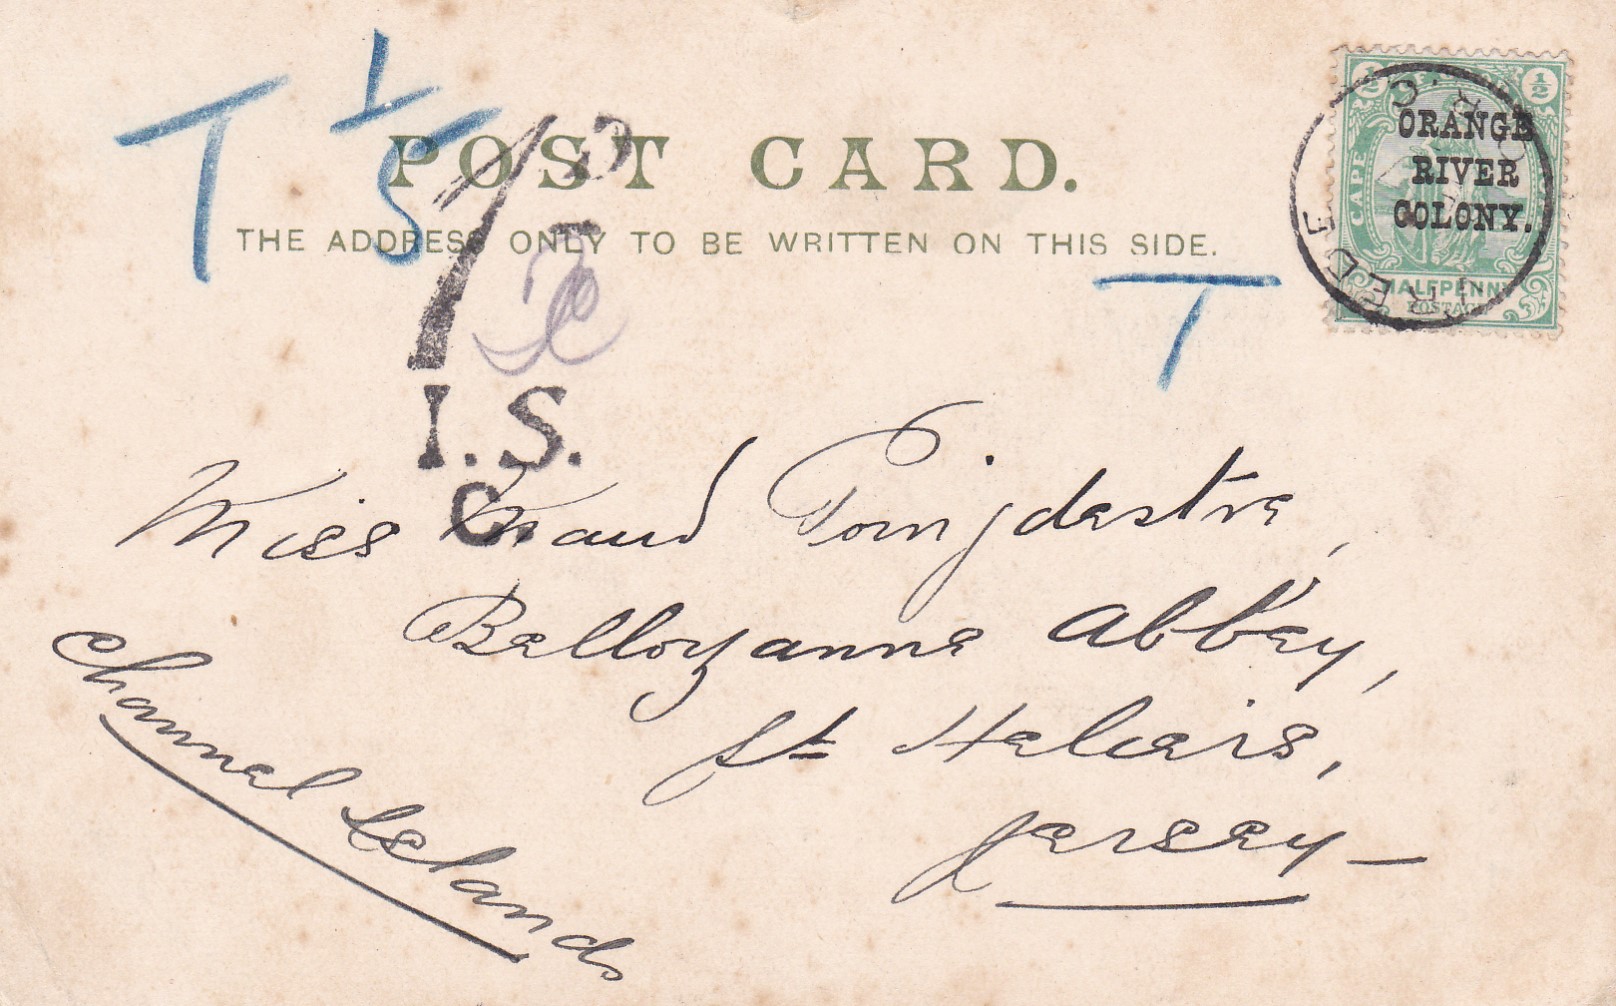 T 1/5
POST CARD.
THE ADDRESS ONLY TO BE WRITTEN ON THIS SIDE.
T
ORANGE
RIVER
COLONY.
CAPE
½
HALFPENNY
POSTAGE
I.S.
C.
Miss Maud Poingdestre,
Bellozanne Abbey,
St Heliers,
Jersey —
Channel Islands